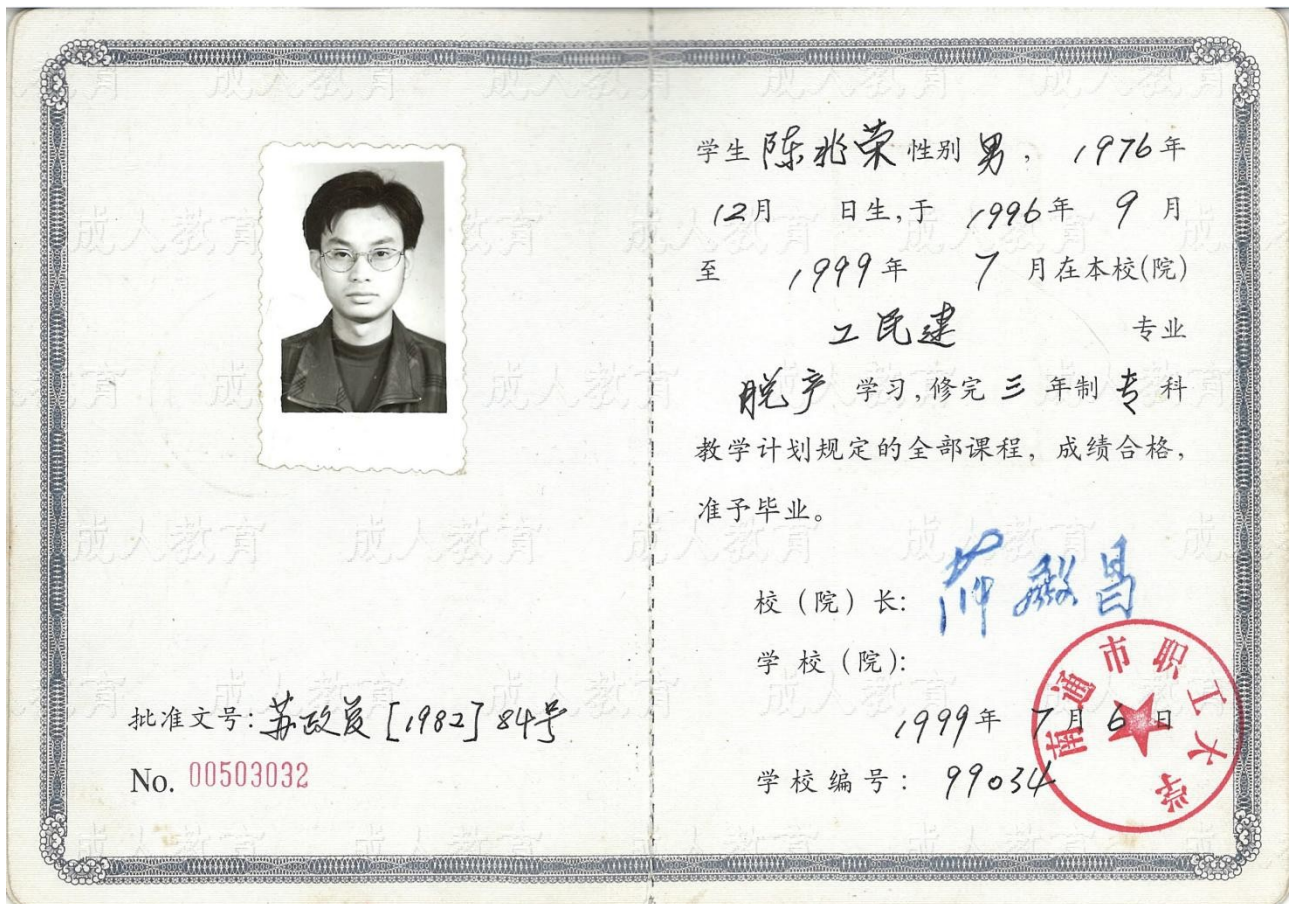 批准文号：苏政复[1982]84号
No. 00503032
学生 陈兆荣 性别 男，1976年
12月 日生，于 1996年 9 月
至 1999年 7 月在本校(院)
工民建 专业
脱产 学习，修完 三 年制 专 科
教学计划规定的全部课程，成绩合格，
准予毕业。
校（院）长：
学校（院）：
1999年 7月 6 日
学校编号：99034
南通市职工大学
成人教育